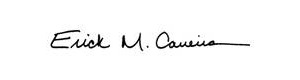 Erick M. Carreira